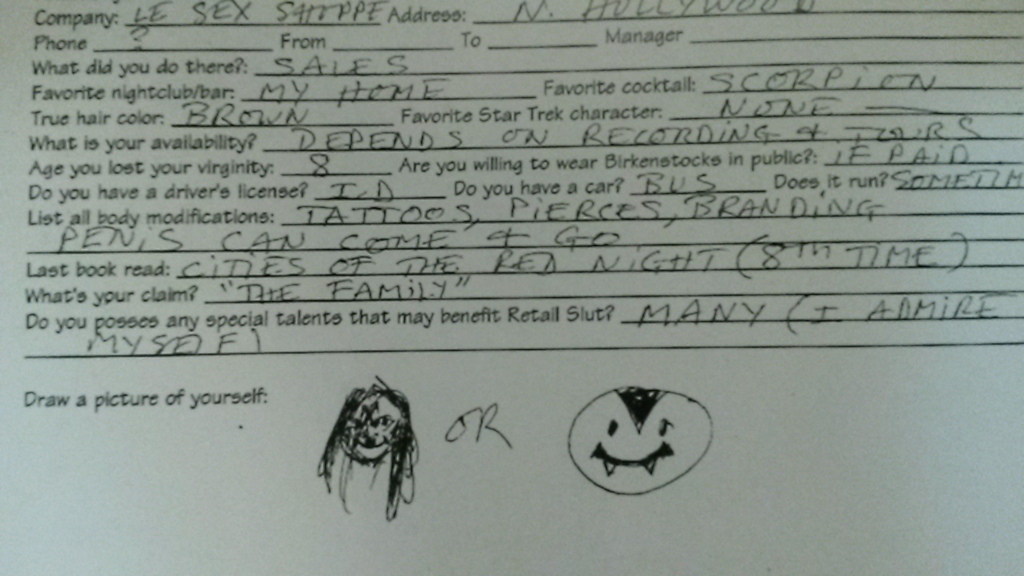 Company: LE SEX SHOPPE Address: N. HOLLYWOOD
Phone ? From To Manager
What did you do there?: SALES
Favorite nightclub/bar: MY HOME Favorite cocktail: SCORPION
True hair color: BROWN Favorite Star Trek character: NONE
What is your availability? DEPENDS ON RECORDING & TOURS
Age you lost your virginity: 8 Are you willing to wear Birkenstocks in public?: IF PAID
Do you have a driver's license? I.D Do you have a car? BUS Does it run? SOMETIM
List all body modifications: TATTOOS, PIERCES, BRANDING
PENIS CAN COME & GO
Last book read: CITIES OF THE RED NIGHT (8TH TIME)
What's your claim? "THE FAMILY"
Do you posses any special talents that may benefit Retail Slut? MANY (I ADMIRE
MYSELF)
Draw a picture of yourself: OR